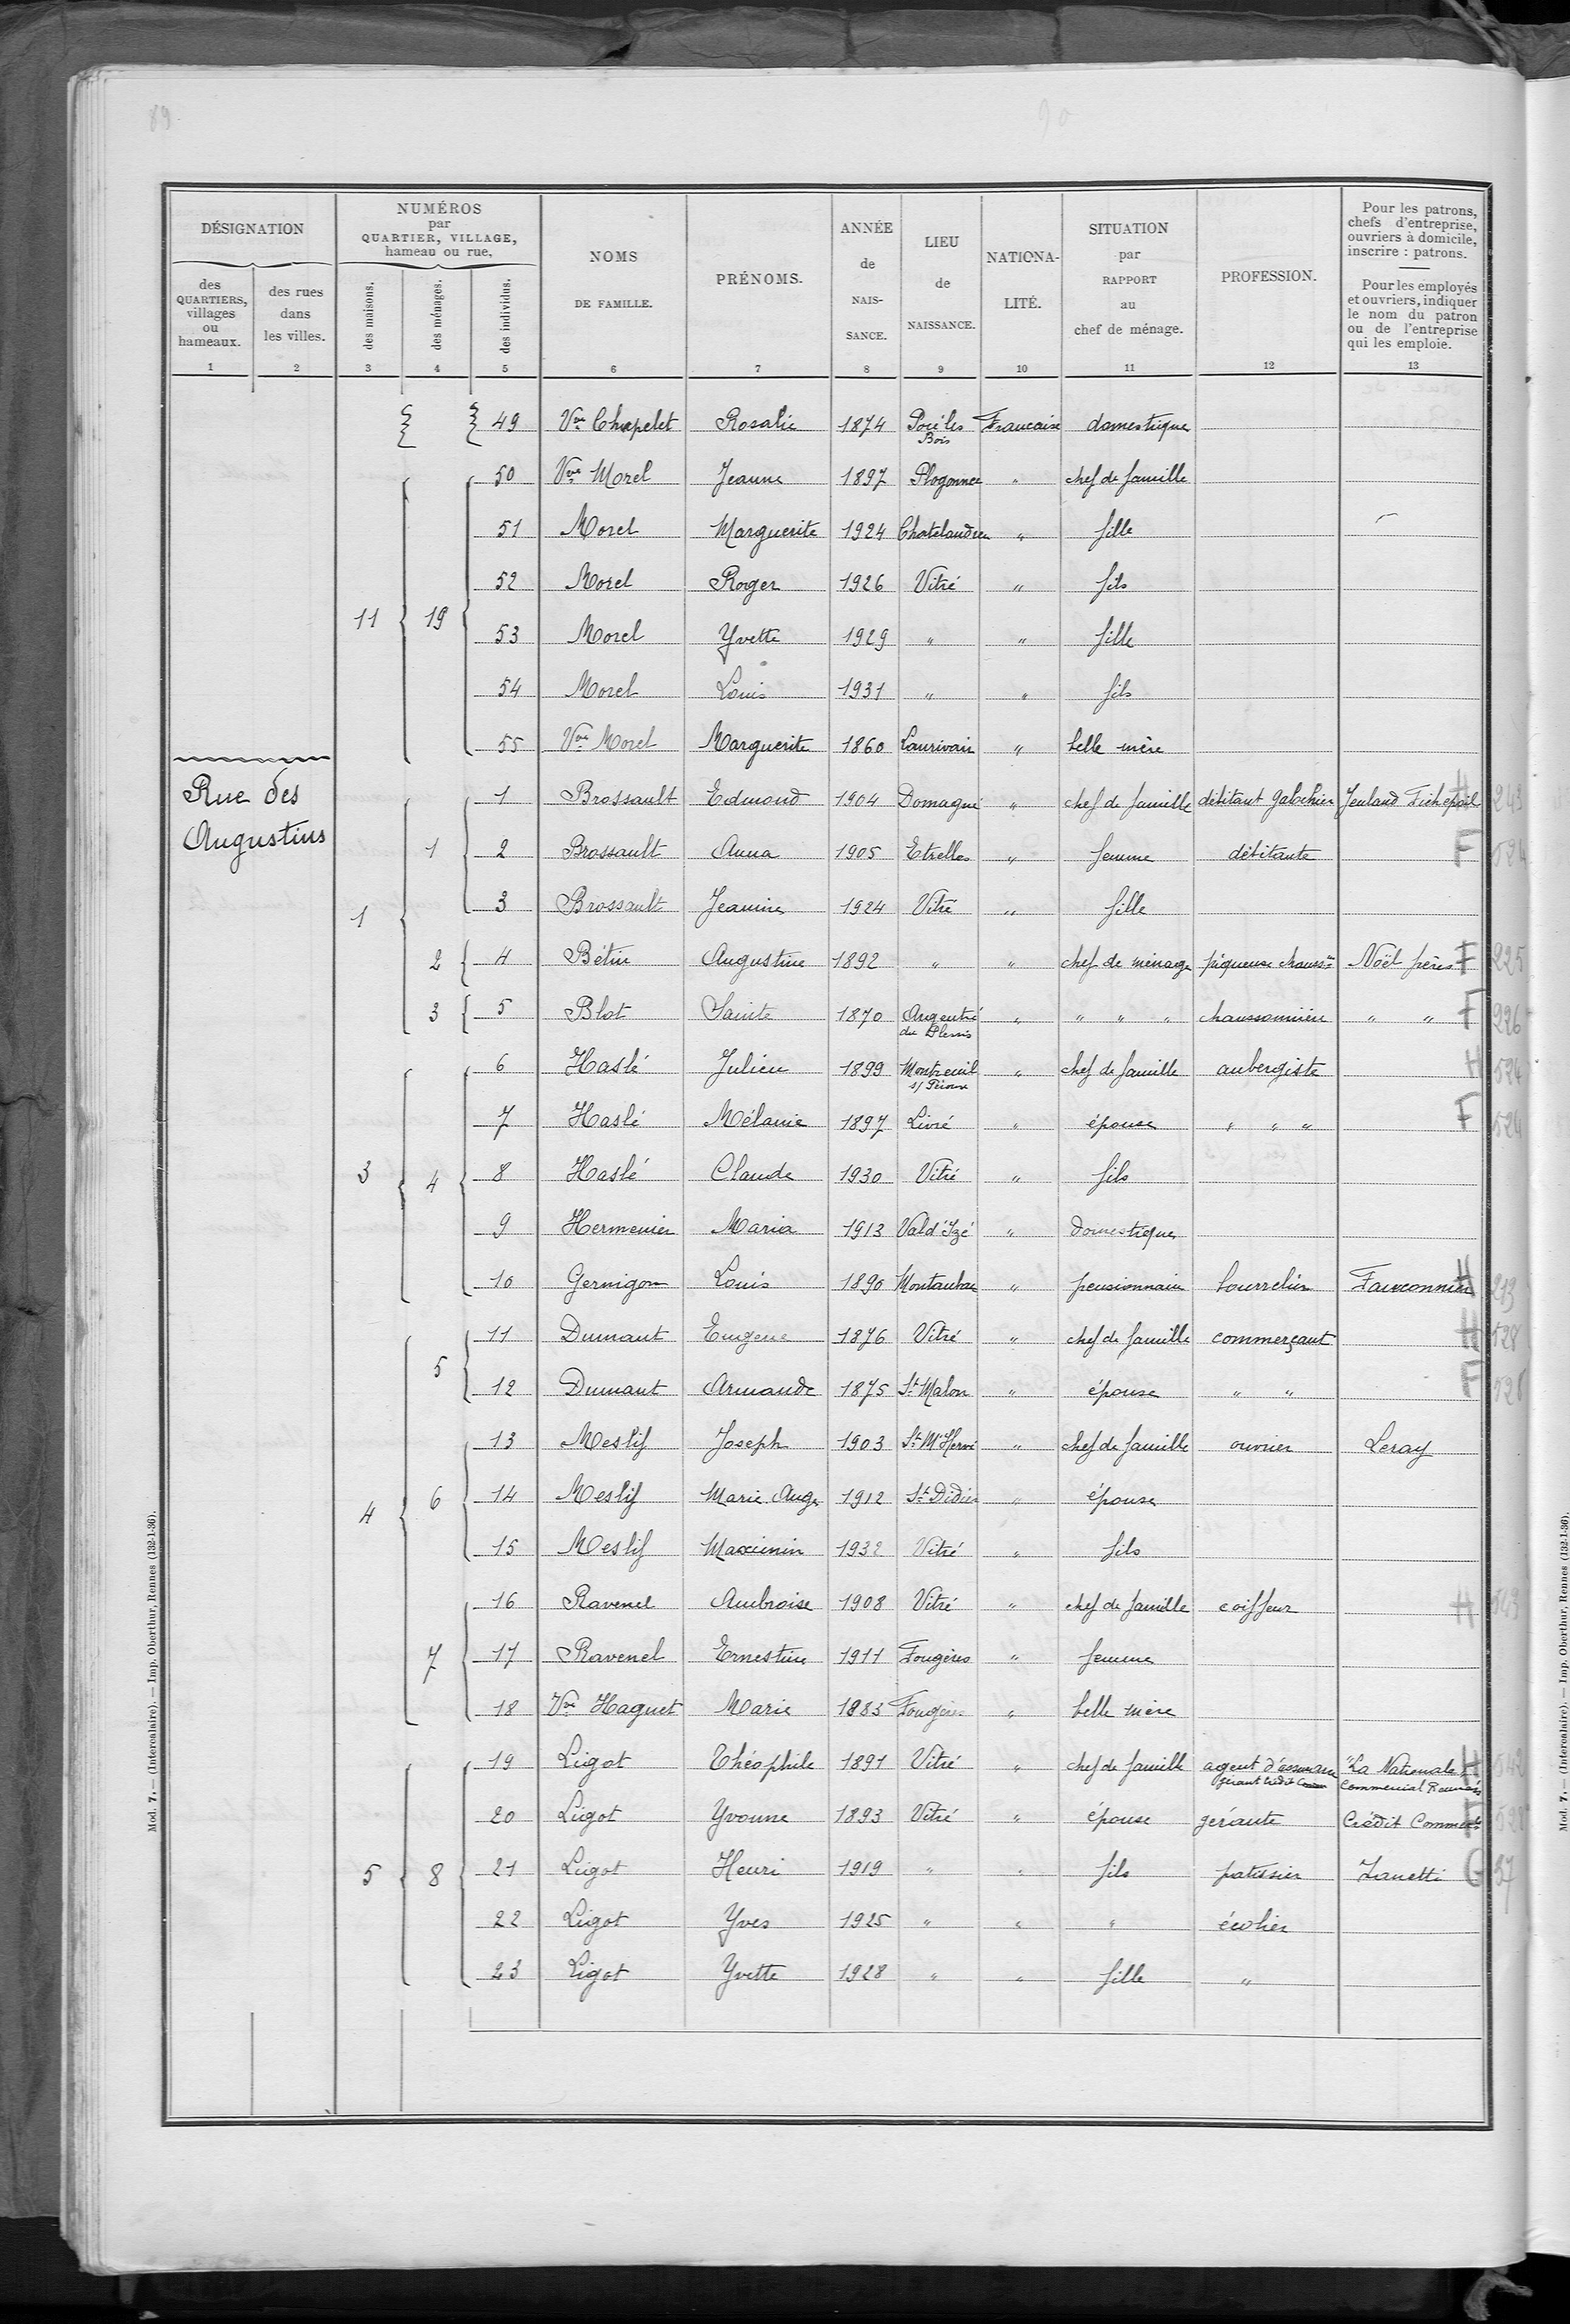 89
90
DÉSIGNATION
des QUARTIERS, villages ou hameaux.
des rues dans les villes.
NUMÉROS par QUARTIER, VILLAGE, hameau ou rue.
des maisons.
des ménages.
des individus.
NOMS DE FAMILLE.
PRÉNOMS.
ANNÉE de NAIS-SANCE.
LIEU de NAISSANCE.
NATIONA-LITÉ.
SITUATION par RAPPORT au chef de ménage.
PROFESSION.
Pour les patrons, chefs d'entreprise, ouvriers à domicile, inscrire : patrons.
Pour les employés et ouvriers, indiquer le nom du patron ou de l'entreprise qui les emploie.
1 2 3 4 5 6 7 8 9 10 11 12 13
49 Vve Chapelet Rosalie 1874 Pocé les Bois Francaise domestique
50 Vve Morel Jeanne 1897 Plogonnec " chef de famille
51 Morel Marguerite 1924 Chatelaudren " fille
52 Morel Roger 1926 Vitré " fils
11 19 53 Morel Yvette 1929 " " fille
54 Morel Louis 1931 " " fils
55 Vve Morel Marguerite 1860 Laurivain " belle mère
Rue des Augustins
1 Brossault Edmond 1904 Domagné " chef de famille débitant galochier Jeuland Fichepoil H 243
1 2 Brossault Anna 1905 Etrelles " femme débitante F 524
1 3 Brossault Jeanine 1924 Vitré " fille
2 4 Bétin Augustine 1892 " " chef de ménage piqueuse chauss Noël pères F 225
3 5 Blot Sainte 1870 Argentré du Plessis " " " " chaussonnière " " F 226
6 Haslé Julien 1899 Montreuil s/ Pérouse " chef de famille aubergiste H 524
7 Haslé Mélanie 1897 Livré " épouse " " " F 524
3 4 8 Haslé Claude 1930 Vitré " fils
9 Hermenier Maria 1913 Val d'Izé " domestique
10 Gernigon Louis 1890 Montauban " pensionnaire bourrelier Fauconnier H 213
11 Dumant Eugène 1876 Vitré " chef de famille commerçant H 528
5 12 Dumant Armande 1875 St Malon " épouse " " F 528
13 Meslif Joseph 1903 St M'Hervé " chef de famille ouvrier Leray
4 6 14 Meslif Marie Ange 1912 St Didier " épouse
15 Meslif Maximin 1932 Vitré " fils
16 Ravenel Ambroise 1908 Vitré " chef de famille coiffeur H 543
7 17 Ravenel Ernestine 1911 Fougères " femme
18 Vve Haquet Marie 1883 Fougères " belle mère
19 Ligot Théophile 1891 Vitré " chef de famille agent d'assurance gérant crédit "La Nationale" Commercial Rennais H 542
20 Ligot Yvonne 1893 Vitré " épouse gérante Crédit Commer F 528
5 8 21 Ligot Henri 1919 " " fils patissier Zanetti G 37
22 Ligot Yves 1925 " " " écolier
23 Ligot Yvette 1928 " " fille "
Mod. 7. — (Intercalaire). — Imp. Oberthur, Rennes (132-1-36).
Mod. 7. — (Intercalaire). — Imp. Oberthur, Rennes (132-1-36).